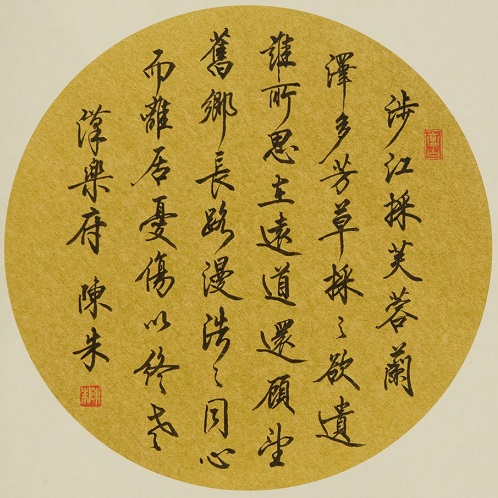 涉江採芙蓉蘭
澤多芳草採之欲遺
誰所思在遠道還顧望
舊鄉長路漫浩〻同心
而離居憂傷以終老
漢樂府 陳朱